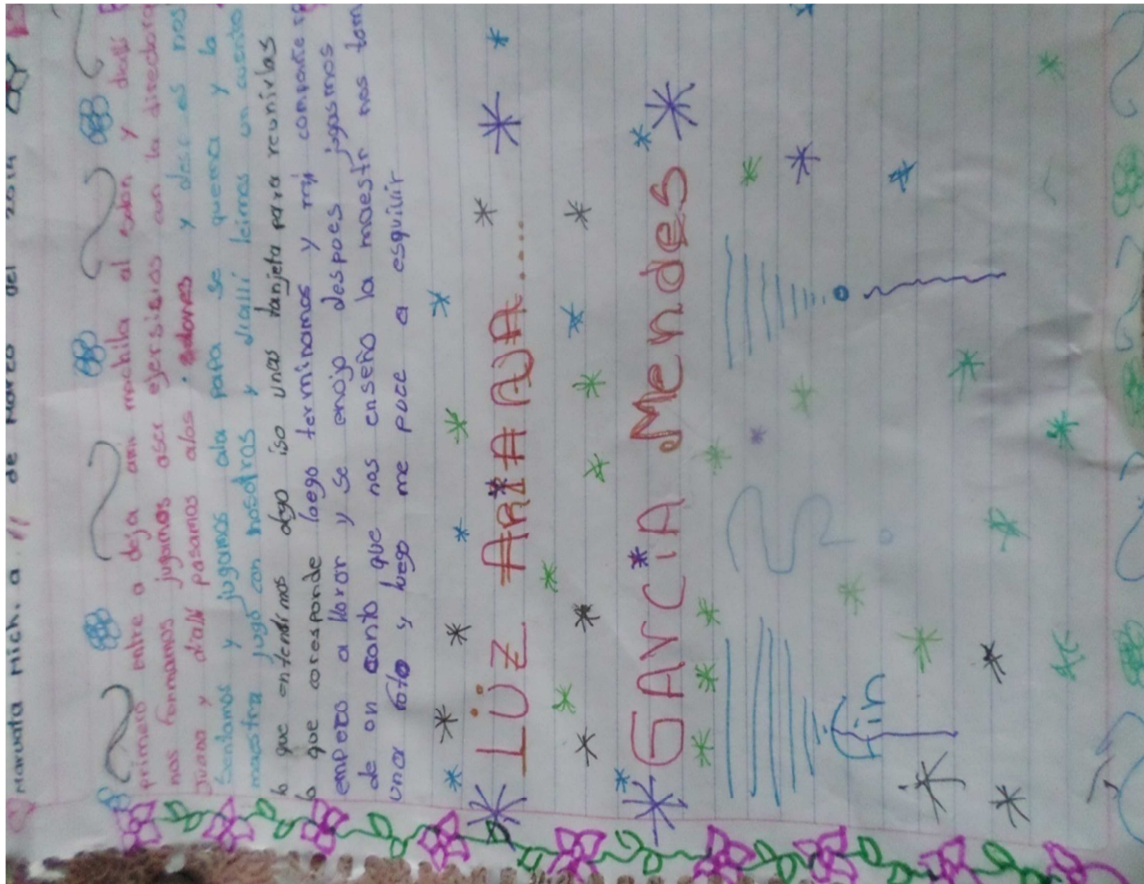 Maruata Mich. a 11 de Marzo del 2014
primero entre a deja ami mochila al salon y dialli
nos formamos jugamos aser ejersisios con la directora
Juana y dialli pasamos alos salones y desc es nos
Sentamos y jugamos ala papa se quema y la
maestra jugó con nosotros y dialli leimos un cuento
lo que entendimos algo iso unas tarjeta para reunirlas
lo que coresponde luego terminamos y mi compañe
empezo a llorar y se enojo despoes jugasmos
de on canto que nos enseño la maestr nos tom
una foto y luego me puce a esquivir
LUZ AriANA....
GArCiA Mendes
Fin